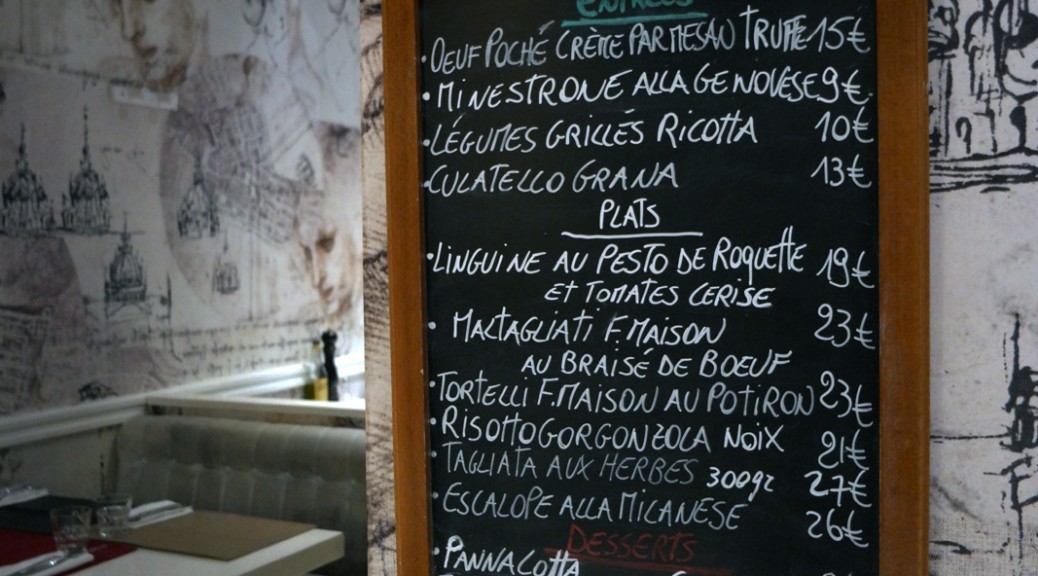 ENTRÉES
• OEUF POCHÉ CRÈME PARMESAN TRUFFE 15€
• MINESTRONE ALLA GENOVESE 9€
• LÉGUMES GRILLÉS RICOTTA 10€
• CULATELLO GRANA 13€
PLATS
• LINGUINE AU PESTO DE ROQUETTE 19€
ET TOMATES CERISE
• MALTAGLIATI F.MAISON 23€
AU BRAISÉ DE BOEUF
• TORTELLI F.MAISON AU POTIRON 23€
• RISOTTO GORGONZOLA NOIX 21€
• TAGLIATA AUX HERBES 300gr 27€
• ESCALOPE ALLA MILANESE 26€
DESSERTS
• PANNA COTTA